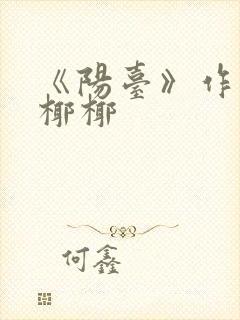 《陽臺》作
椰椰
何鑫